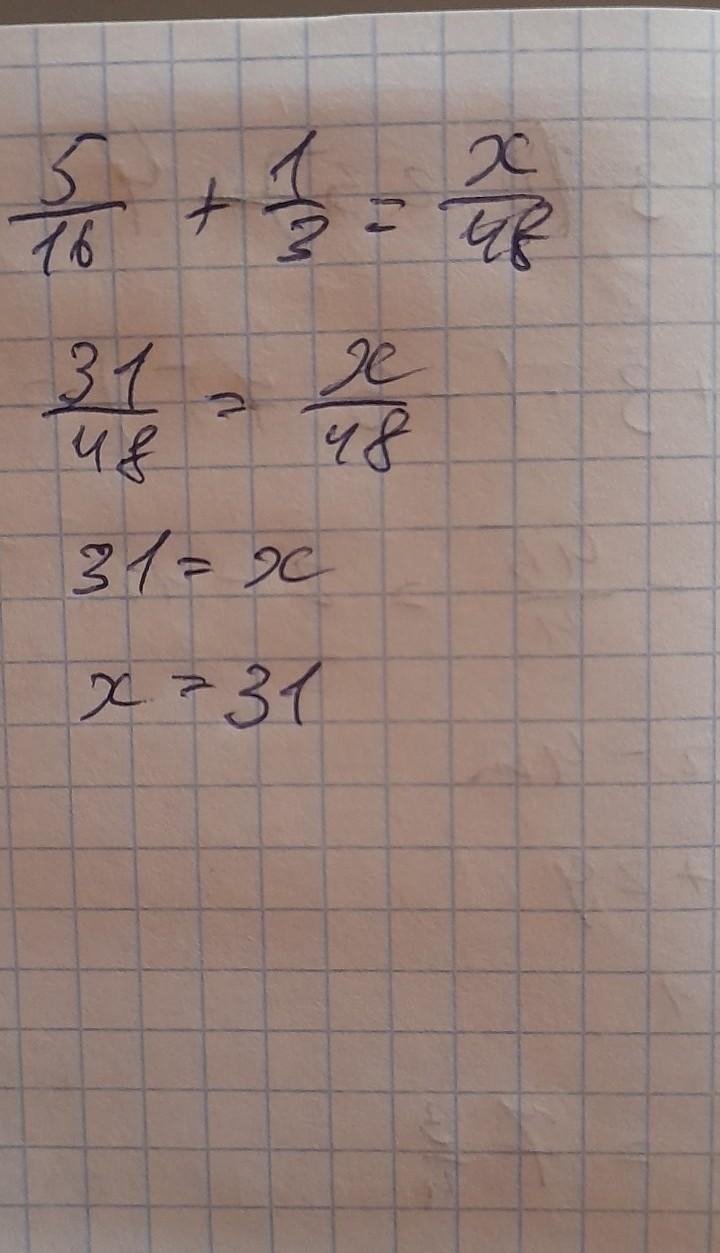 5/16 + 1/3 = x/48
31/48 = x/48
31 = x
x = 31